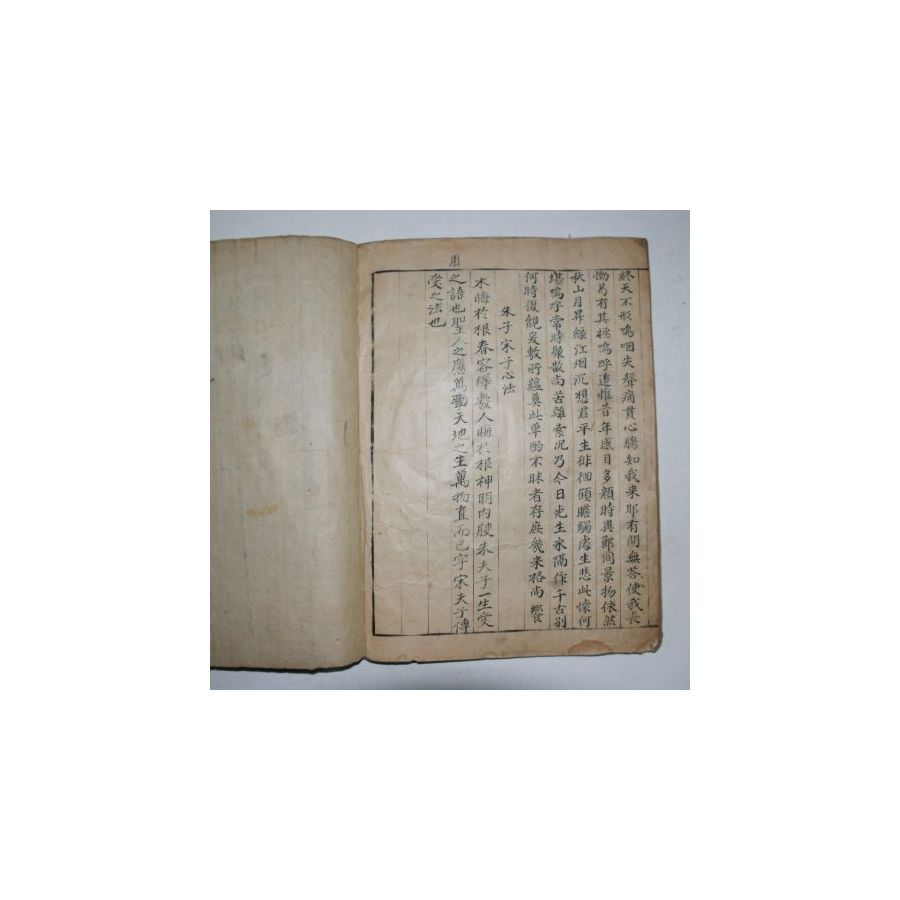 終天不形嗚咽失聲痛貫心膓知我來耶有問無答使我長
慟曷有其極嗚呼追惟昔年感目多顏時異節同景物依然
秋山月昇綠江烟沉想君平生徘徊顧瞻觸處生悲此懷何
堪嗚呼常時聚散尚苦離索况乃今日先生永隔作千古别
何時復覩爰敷所蘊奠此單酌不昧者存庶幾来格尚饗
朱子宋子心法
木晦於根春容燁敷人晦於根神明内腴朱夫子一生受
用
之語也聖人之應萬事天地之生萬物直而已字宋夫子傳
受之法也